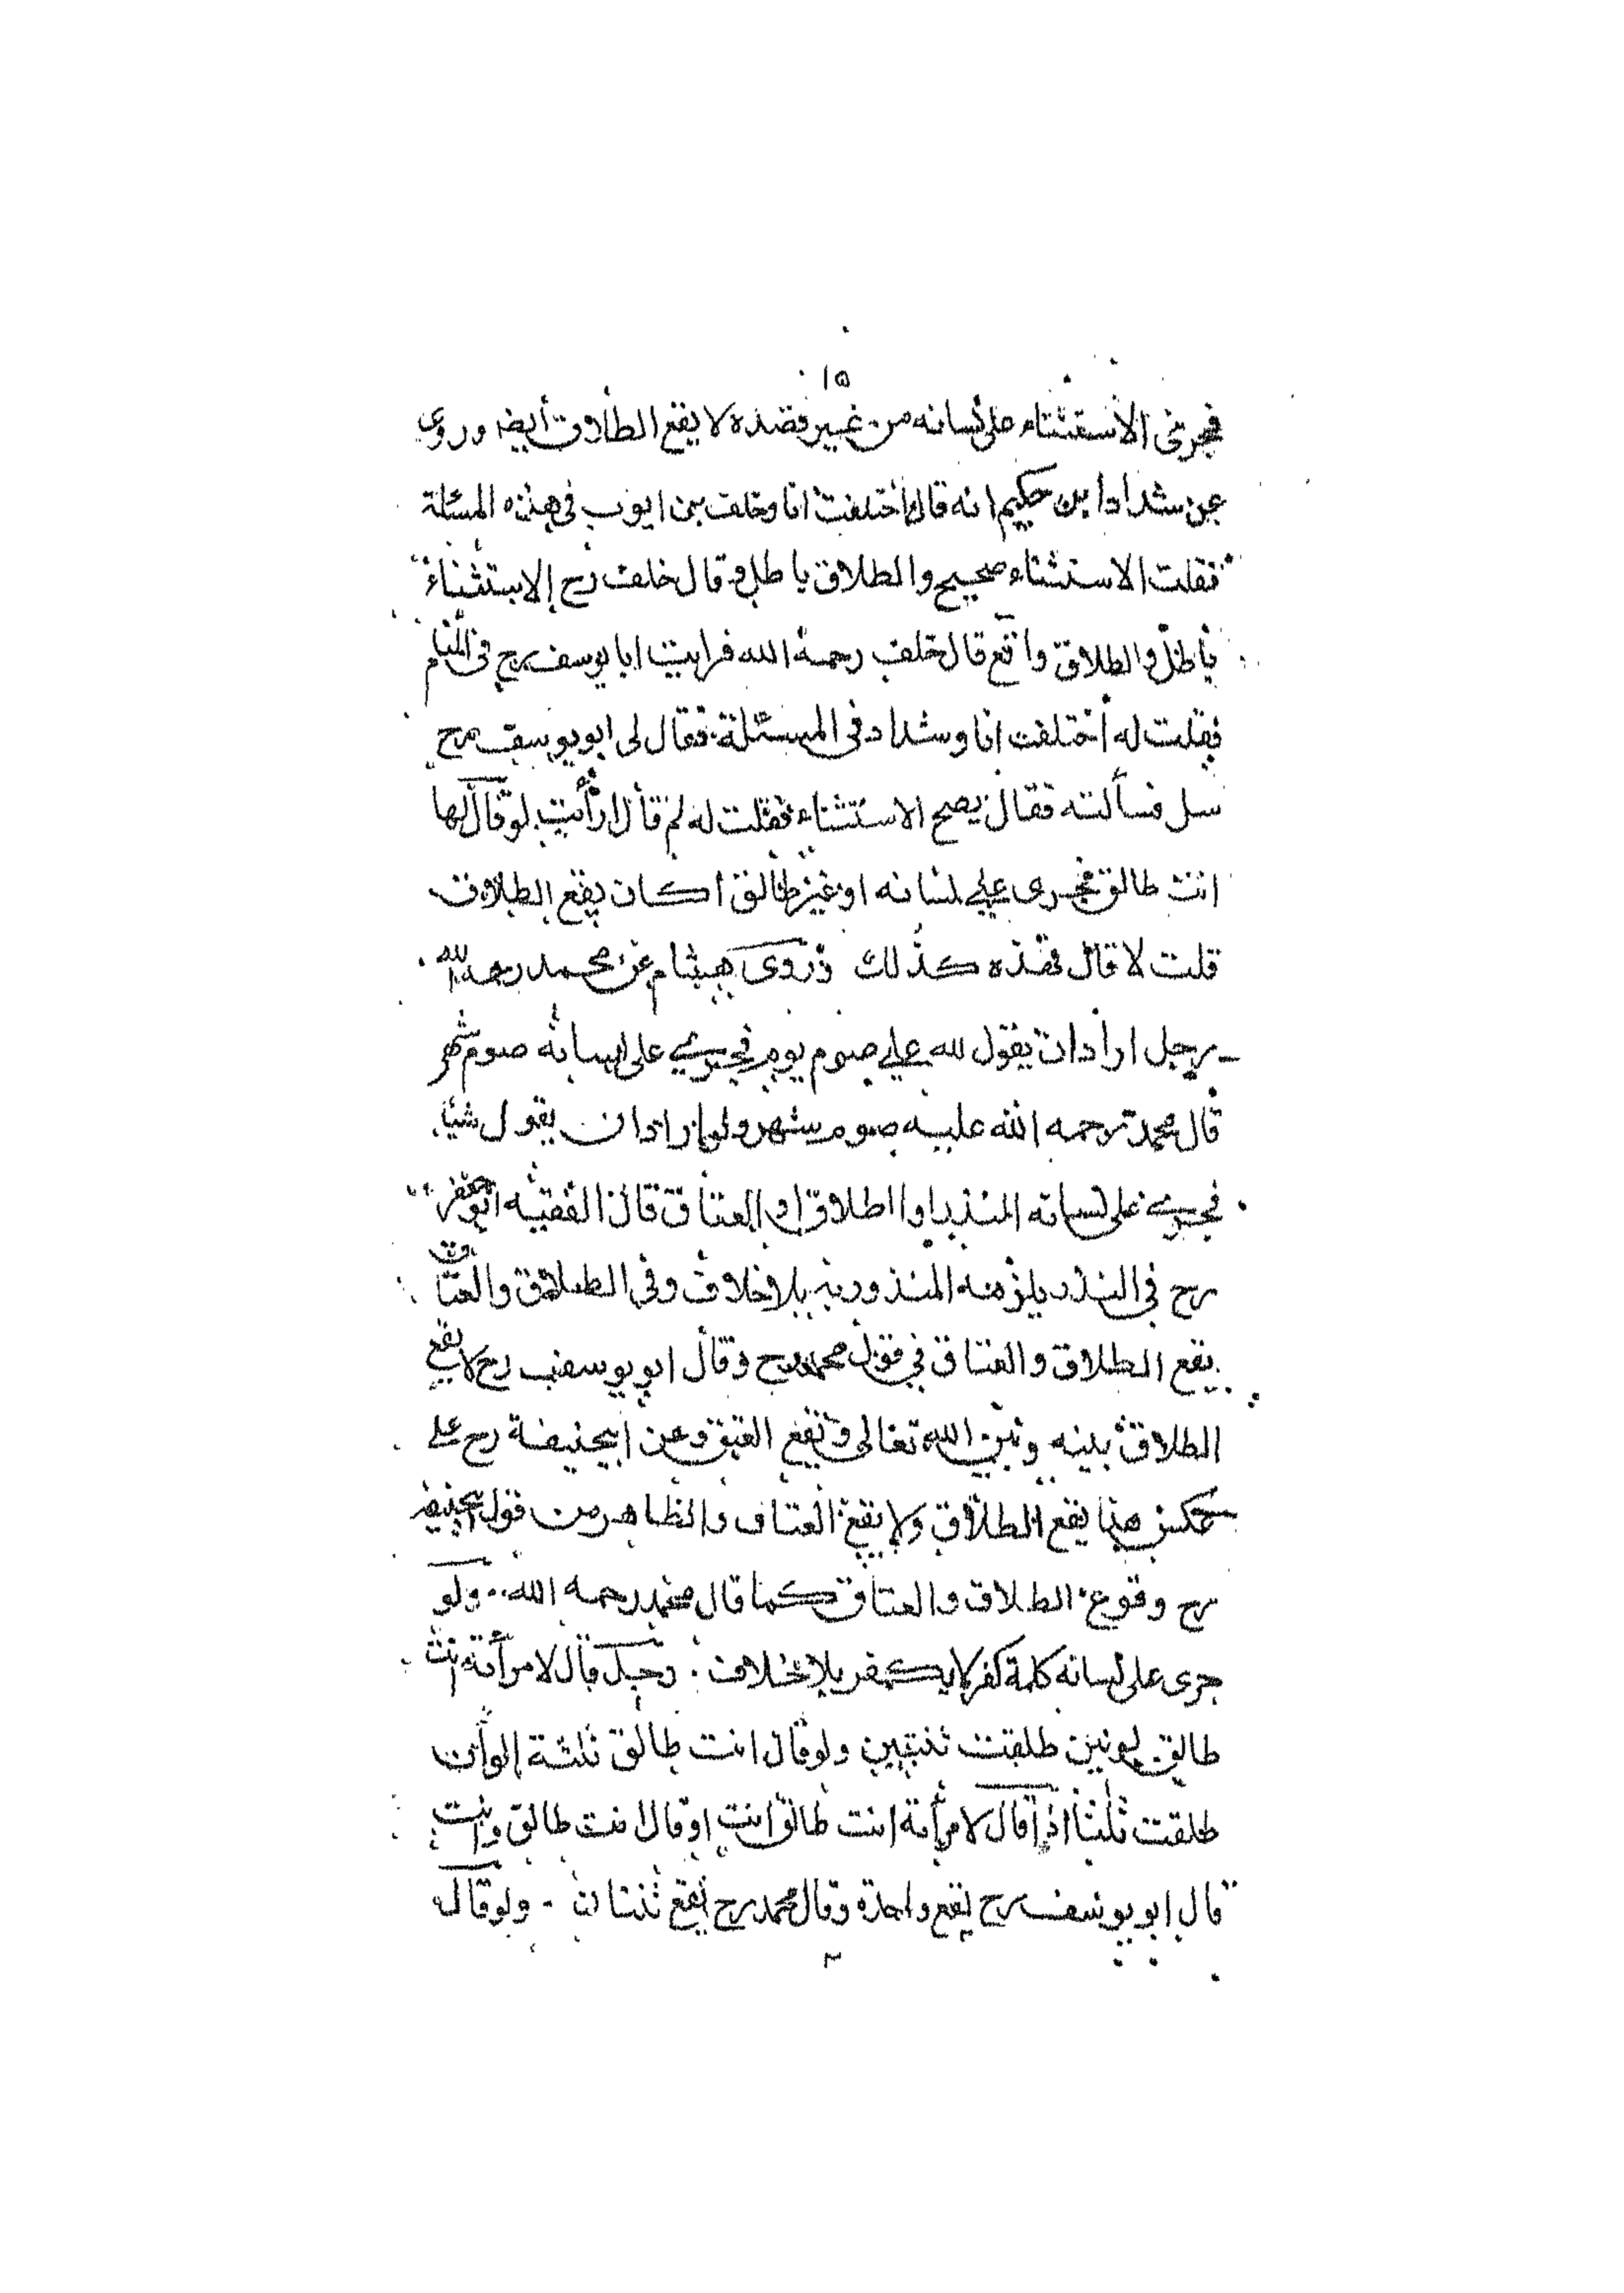 ١٥
فجرى الاستثناء على لسانه من غير قصده لا يقع الطلاق أيضا وروي
عن شداد ابن حكيم انه قال اختلفت انا وخلف بن ايوب في هذه المسئلة
فقلت الاستثناء صحيح والطلاق باطل وقال خلف رح الاستثناء
باطل والطلاق واقع قال خلف رحمه الله فرايت ابا يوسف رح في المنام
فقلت له اختلفت انا وشداد في المسئلة فقال لى ابو يوسف رح
سل فسألته فقال يصح الاستثناء فقلت له لم قال ارأيت لو قال لها
انت طالق فجرى على لسانه او غير طالق أكان يقع الطلاق
قلت لا قال فهذه كذلك وروى هشام عن محمد رحمه الله
رجل اراد ان يقول لله على صوم يوم فجرى على لسانه صوم شهر
قال محمد رحمه الله عليه صوم شهر ولو اراد ان يقول شيأ
فجرى على لسانه النذر او الطلاق او العتاق قال الفقيه ابو جعفر
رح في النذر يلزمه المنذور به بلا خلاف وفي الطلاق والعتاق
يقع الطلاق والعتاق في قول محمد رح وقال ابو يوسف رح لا يقع
الطلاق بينه وبين الله تعالى ويقع العتق وعن ابيحنيفة رح على
عكس هذا يقع الطلاق ولا يقع العتاق والظاهر من قول ابيحنيفة
رح وقوع الطلاق والعتاق كما قال محمد رحمه الله ولو
جرى على لسانه كلمة كفر لا يكفر بلا خلاف رجل قال لامرأته انت
طالق لونين طلقت ثنتين ولو قال انت طالق ثلثة الوان
طلقت ثلثا اذا قال لامرأته انت طالق انت او قال انت طالق وانت
قال ابو يوسف رح يقع واحدة وقال محمد رح يقع ثنتان ولو قال
٢